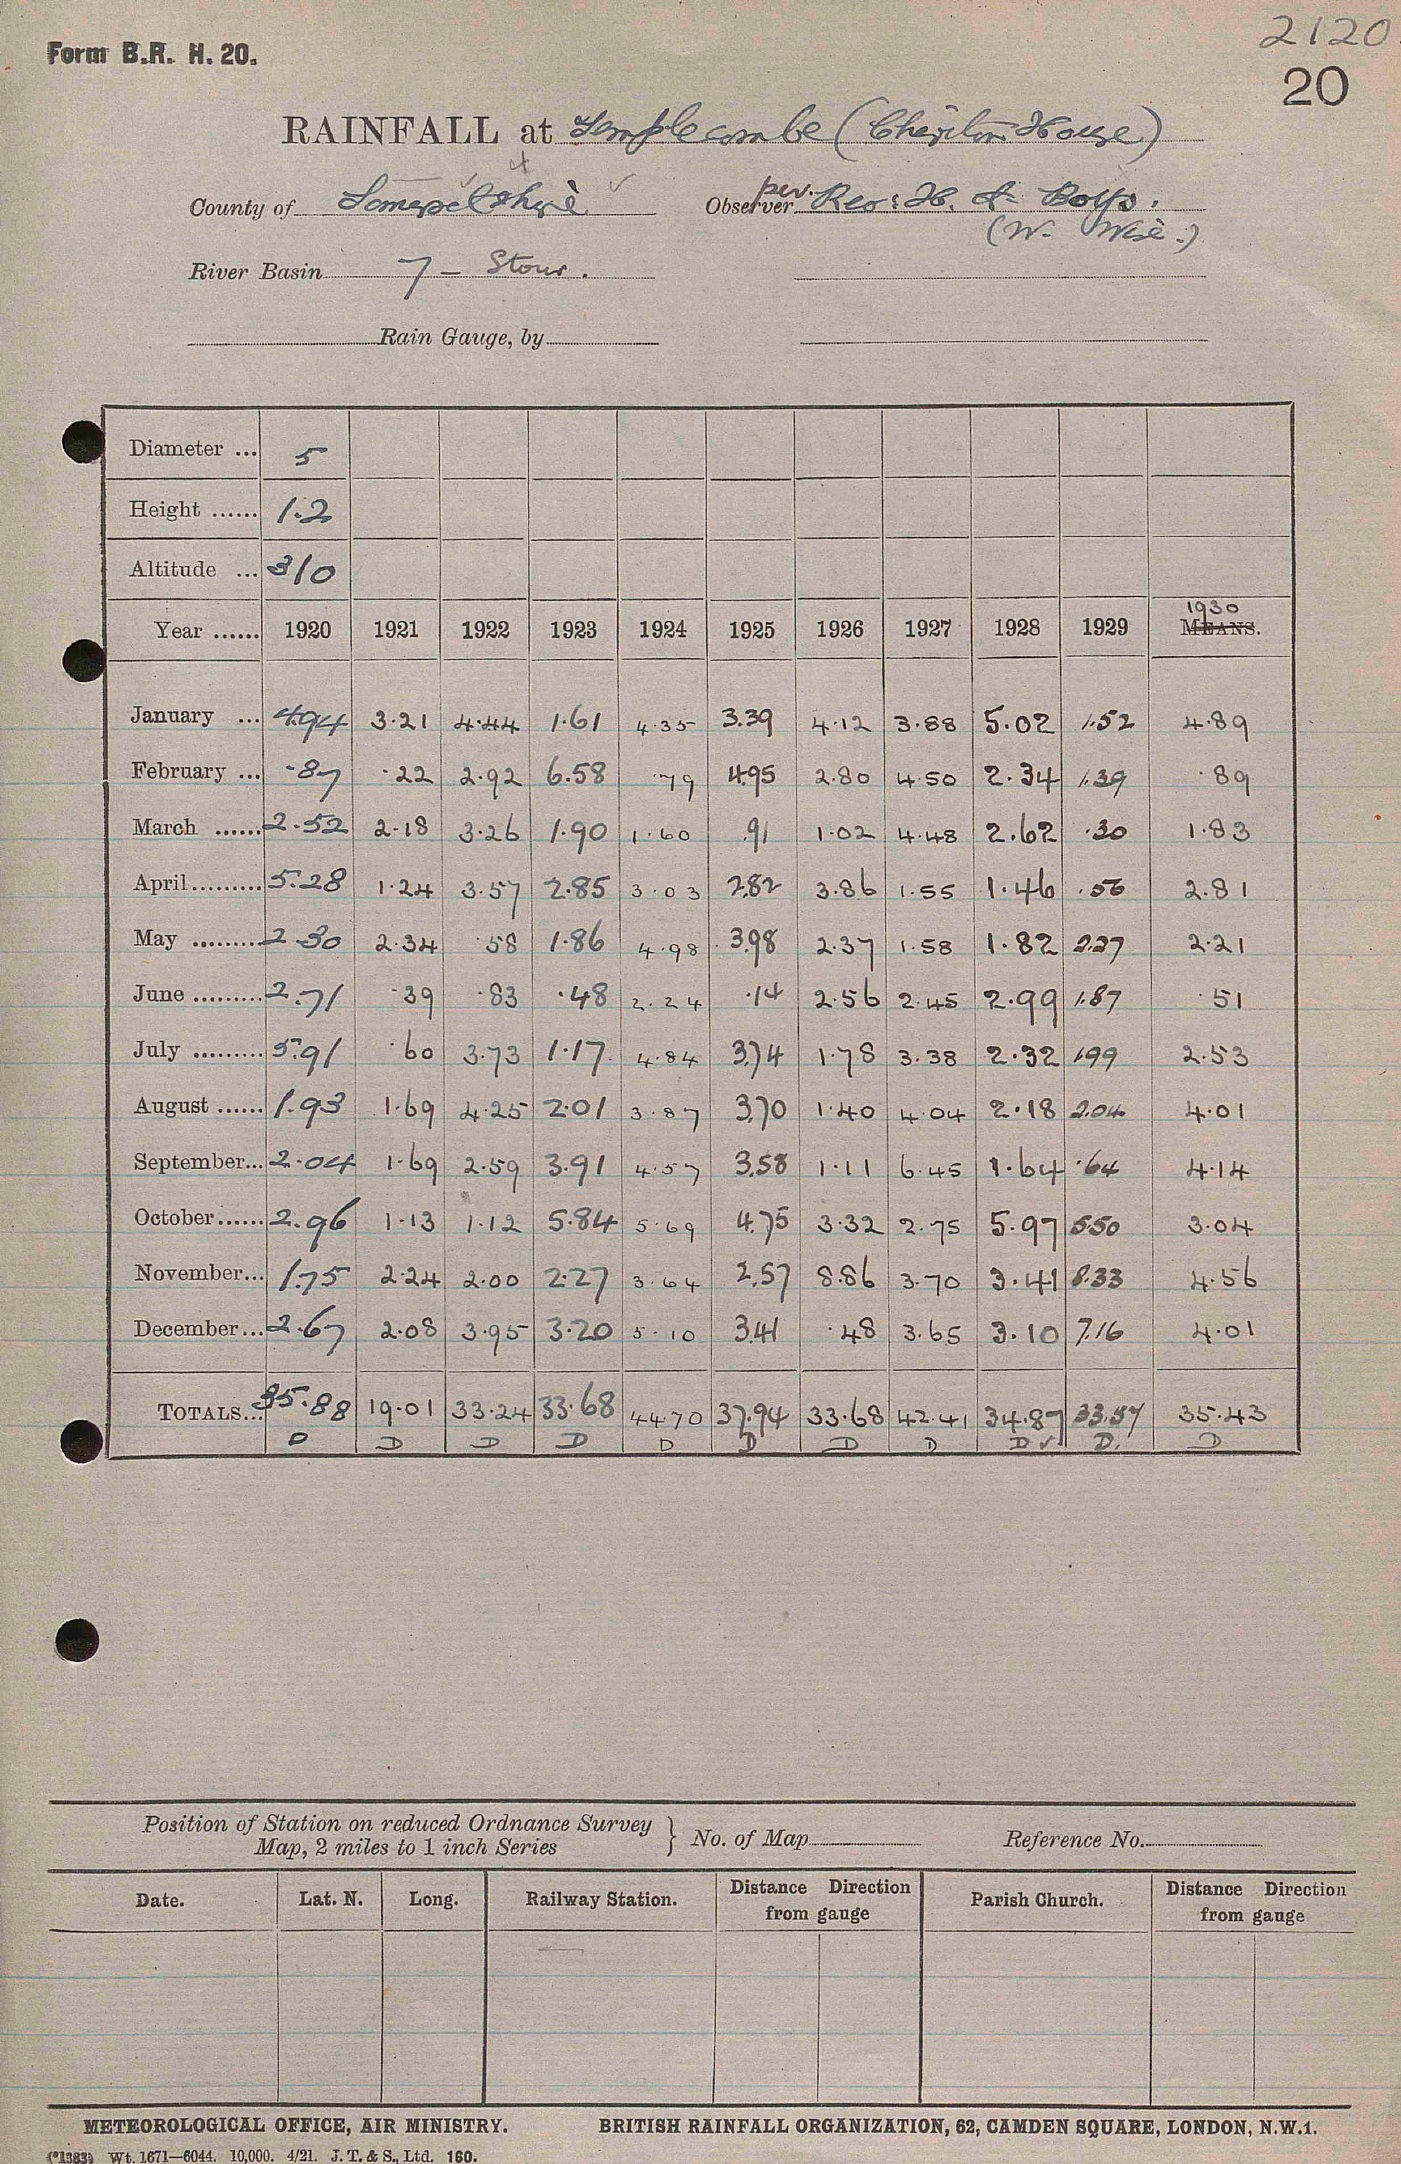 2120
Form B.R. H. 20.
20
RAINFALL at Templecombe (Cheriton House)
County of Somersetshire Observer per. Rev: H. A. Boys.
(W. Wise.)
River Basin 7 - Stour.
Rain Gauge, by
Diameter ... 5
Height ...... 1.2
Altitude ... 310
Year ...... 1920 1921 1922 1923 1924 1925 1926 1927 1928 1929 1930 MEANS.
January ... 4.94 3.21 4.44 1.61 4.35 3.39 4.12 3.88 5.02 1.52 4.89
February ... .87 .22 2.92 6.58 .79 4.95 2.80 4.50 2.34 1.39 .89
March ...... 2.52 2.18 3.26 1.90 1.60 .91 1.02 4.48 2.62 .30 1.83
April ......... 5.28 1.24 3.57 2.85 3.03 2.82 3.86 1.55 1.46 .56 2.81
May ......... 2.30 2.34 .58 1.86 4.98 3.98 2.37 1.58 1.82 2.27 2.21
June ......... 2.71 .39 .83 .48 2.24 .14 2.56 2.45 2.99 1.87 .51
July ......... 5.91 .60 3.73 1.17 4.84 3.74 1.78 3.38 2.32 1.99 2.53
August ...... 1.93 1.69 4.25 2.01 3.87 3.70 1.40 4.04 2.18 2.04 4.01
September... 2.04 1.69 2.59 3.91 4.57 3.58 1.11 6.45 1.64 .64 4.14
October ...... 2.96 1.13 1.12 5.84 5.69 4.75 3.32 2.75 5.97 5.50 3.04
November... 1.75 2.24 2.00 2.27 3.64 2.57 8.86 3.70 3.41 8.33 4.56
December... 2.67 2.08 3.95 3.20 5.10 3.41 .48 3.65 3.10 7.16 4.01
TOTALS... 35.88 19.01 33.24 33.68 44.70 37.94 33.68 42.41 34.87 33.57 35.43
D D D D D D D D D ✓ D. D
Position of Station on reduced Ordnance Survey
Map, 2 miles to 1 inch Series } No. of Map Reference No.
Date. Lat. N. Long. Railway Station. Distance Direction from gauge Parish Church. Distance Direction from gauge
METEOROLOGICAL OFFICE, AIR MINISTRY. BRITISH RAINFALL ORGANIZATION, 62, CAMDEN SQUARE, LONDON, N.W.1.
(*1383) Wt. 1671—6044. 10,000. 4/21. J. T. & S., Ltd. 160.